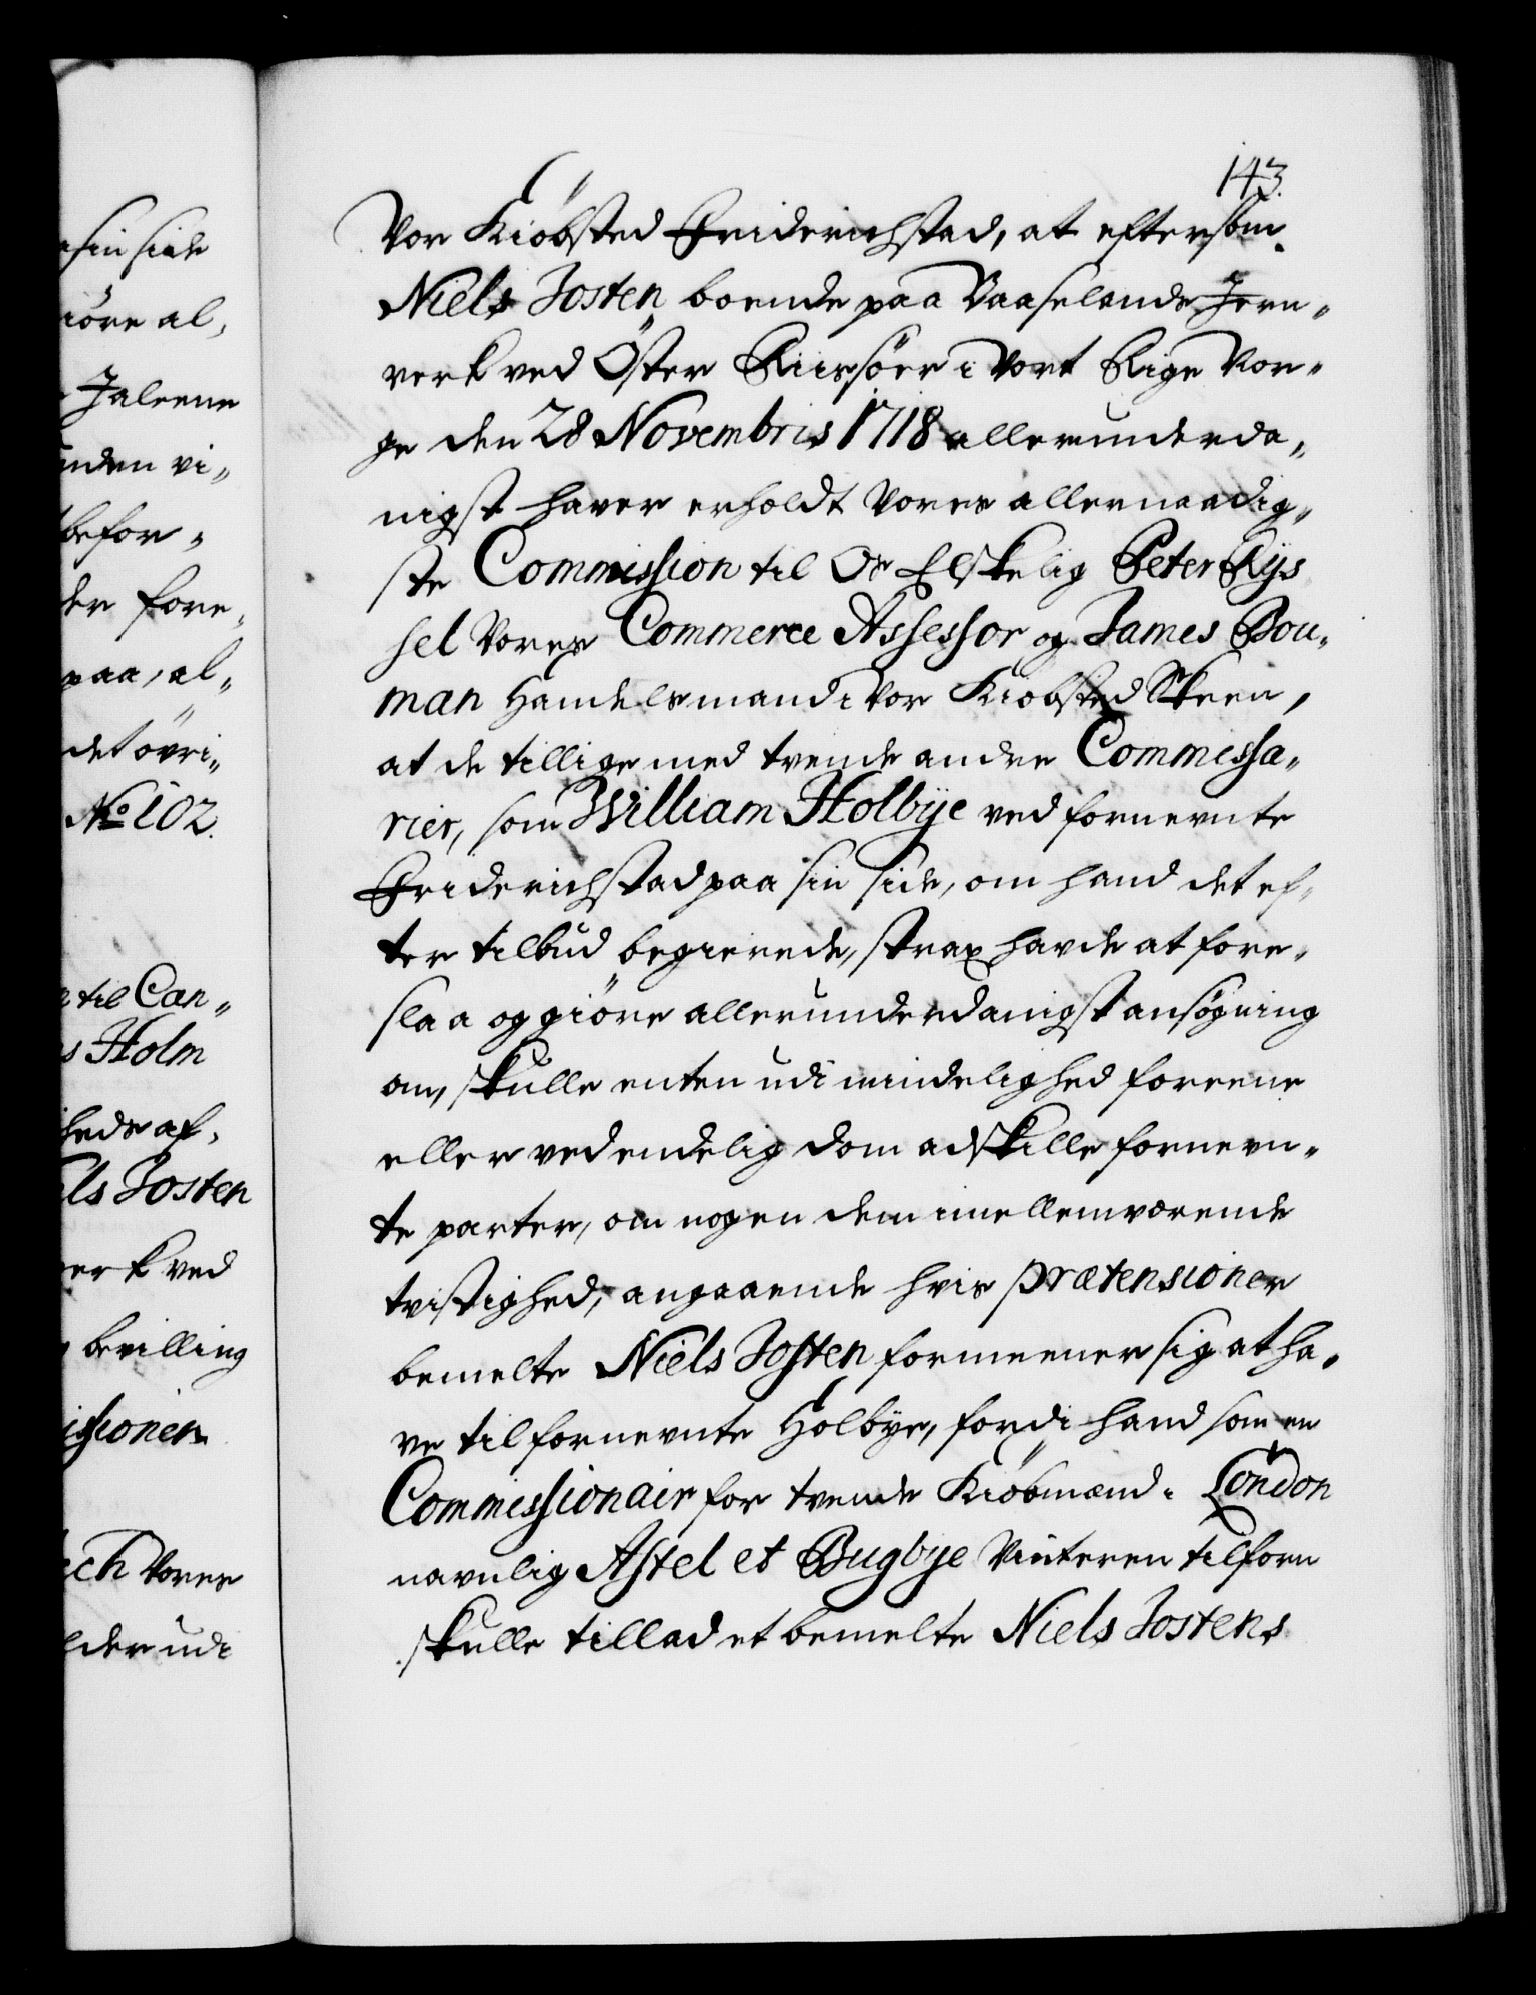 sin side
iöre al,
Jalerne
unden vi„
befor„
der fore„
paa, al„
det övri„
No 102.
til Can„
s Holm
heds af,
ls Josten
verk ved
bevilling
issioner
ech Vores
lder udi
143.
Vor Kiöbsted Friderichstad, at eftersom
Niels Josten boende paa Baaselands Jern„
verk ved Öster Riisöer i Vort Rige Nor„
ge den 28 Novembris 1718 allerunderda„
nigst haver erholdt Vores allernaadig„
ste Commission til Os Elskelig Peter Rys
sel Vores Commerce Assessor og James Bou„
man Handelsmand i Vor Kiöbsted Skeen,
at de tillige med tvende andre Commissa„
rier, som William Holbÿe ved fornevnte
Friderichstad paa sin side, om hand det ef„
ter tilbud begierede, strax havde at fore„
slaa og giöre allerunderdanigst ansögning
om, skulle enten udi mindelighed foreene
eller ved endelig dom adskille fornevn„
te parter, om nogen dem imellemværende
tvistighed, angaaende hvis prætensioner
bemelte Niels Josten formeener sig at ha„
ve til fornevnte Holbÿe, fordi hand som en
Commissionair for tvende Kiöbmænd i London
navnlig Astel et Bugbÿe Vinteren tilforn
skulle tilladet bemelte Niels Jostens